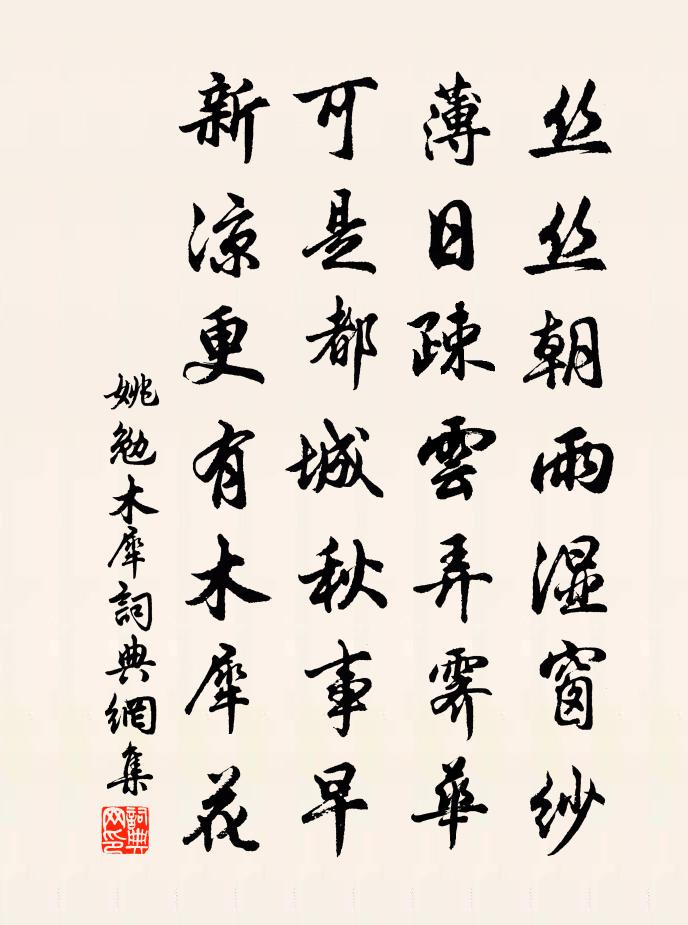 丝丝朝雨湿窗纱
薄日疎雲弄霽華
可是都城秋事早
新凉更有木犀花
姚勉木犀詞典網集
詞典网印